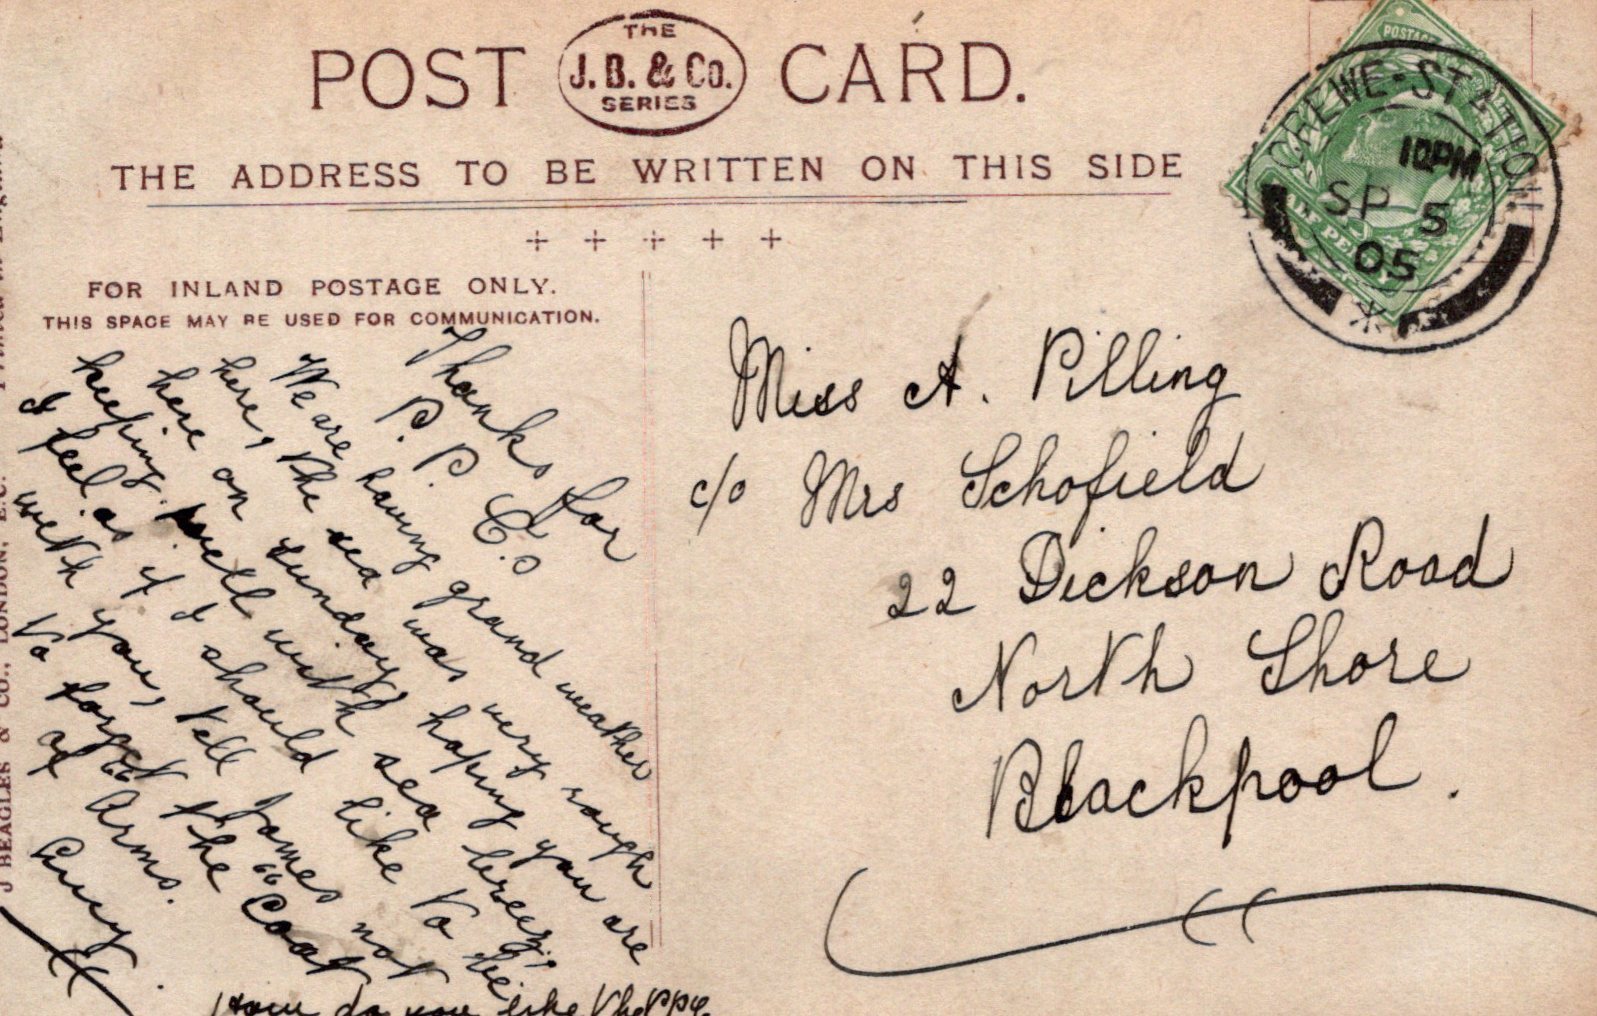 POST CARD.
THE
J. B. & Co.
SERIES
THE ADDRESS TO BE WRITTEN ON THIS SIDE
FOR INLAND POSTAGE ONLY.
THIS SPACE MAY BE USED FOR COMMUNICATION.
Thanks for
P. P. C.s
We are having grand weather
here, the sea was very rough
here on Sunday, hoping you are
keeping well with sea
I feel as if I should like to be
with you, tell James not
to forget the "Coat
of" Arms.
Lucy.
How do you like the
Miss A. Pilling
c/o Mrs Schofield
22 Dickson Road
North Shore
Blackpool.
POSTAGE
CREWE-STATION
10PM
SP 5
05
J BEAGLES & CO., LONDON, E.C.
Printed in England